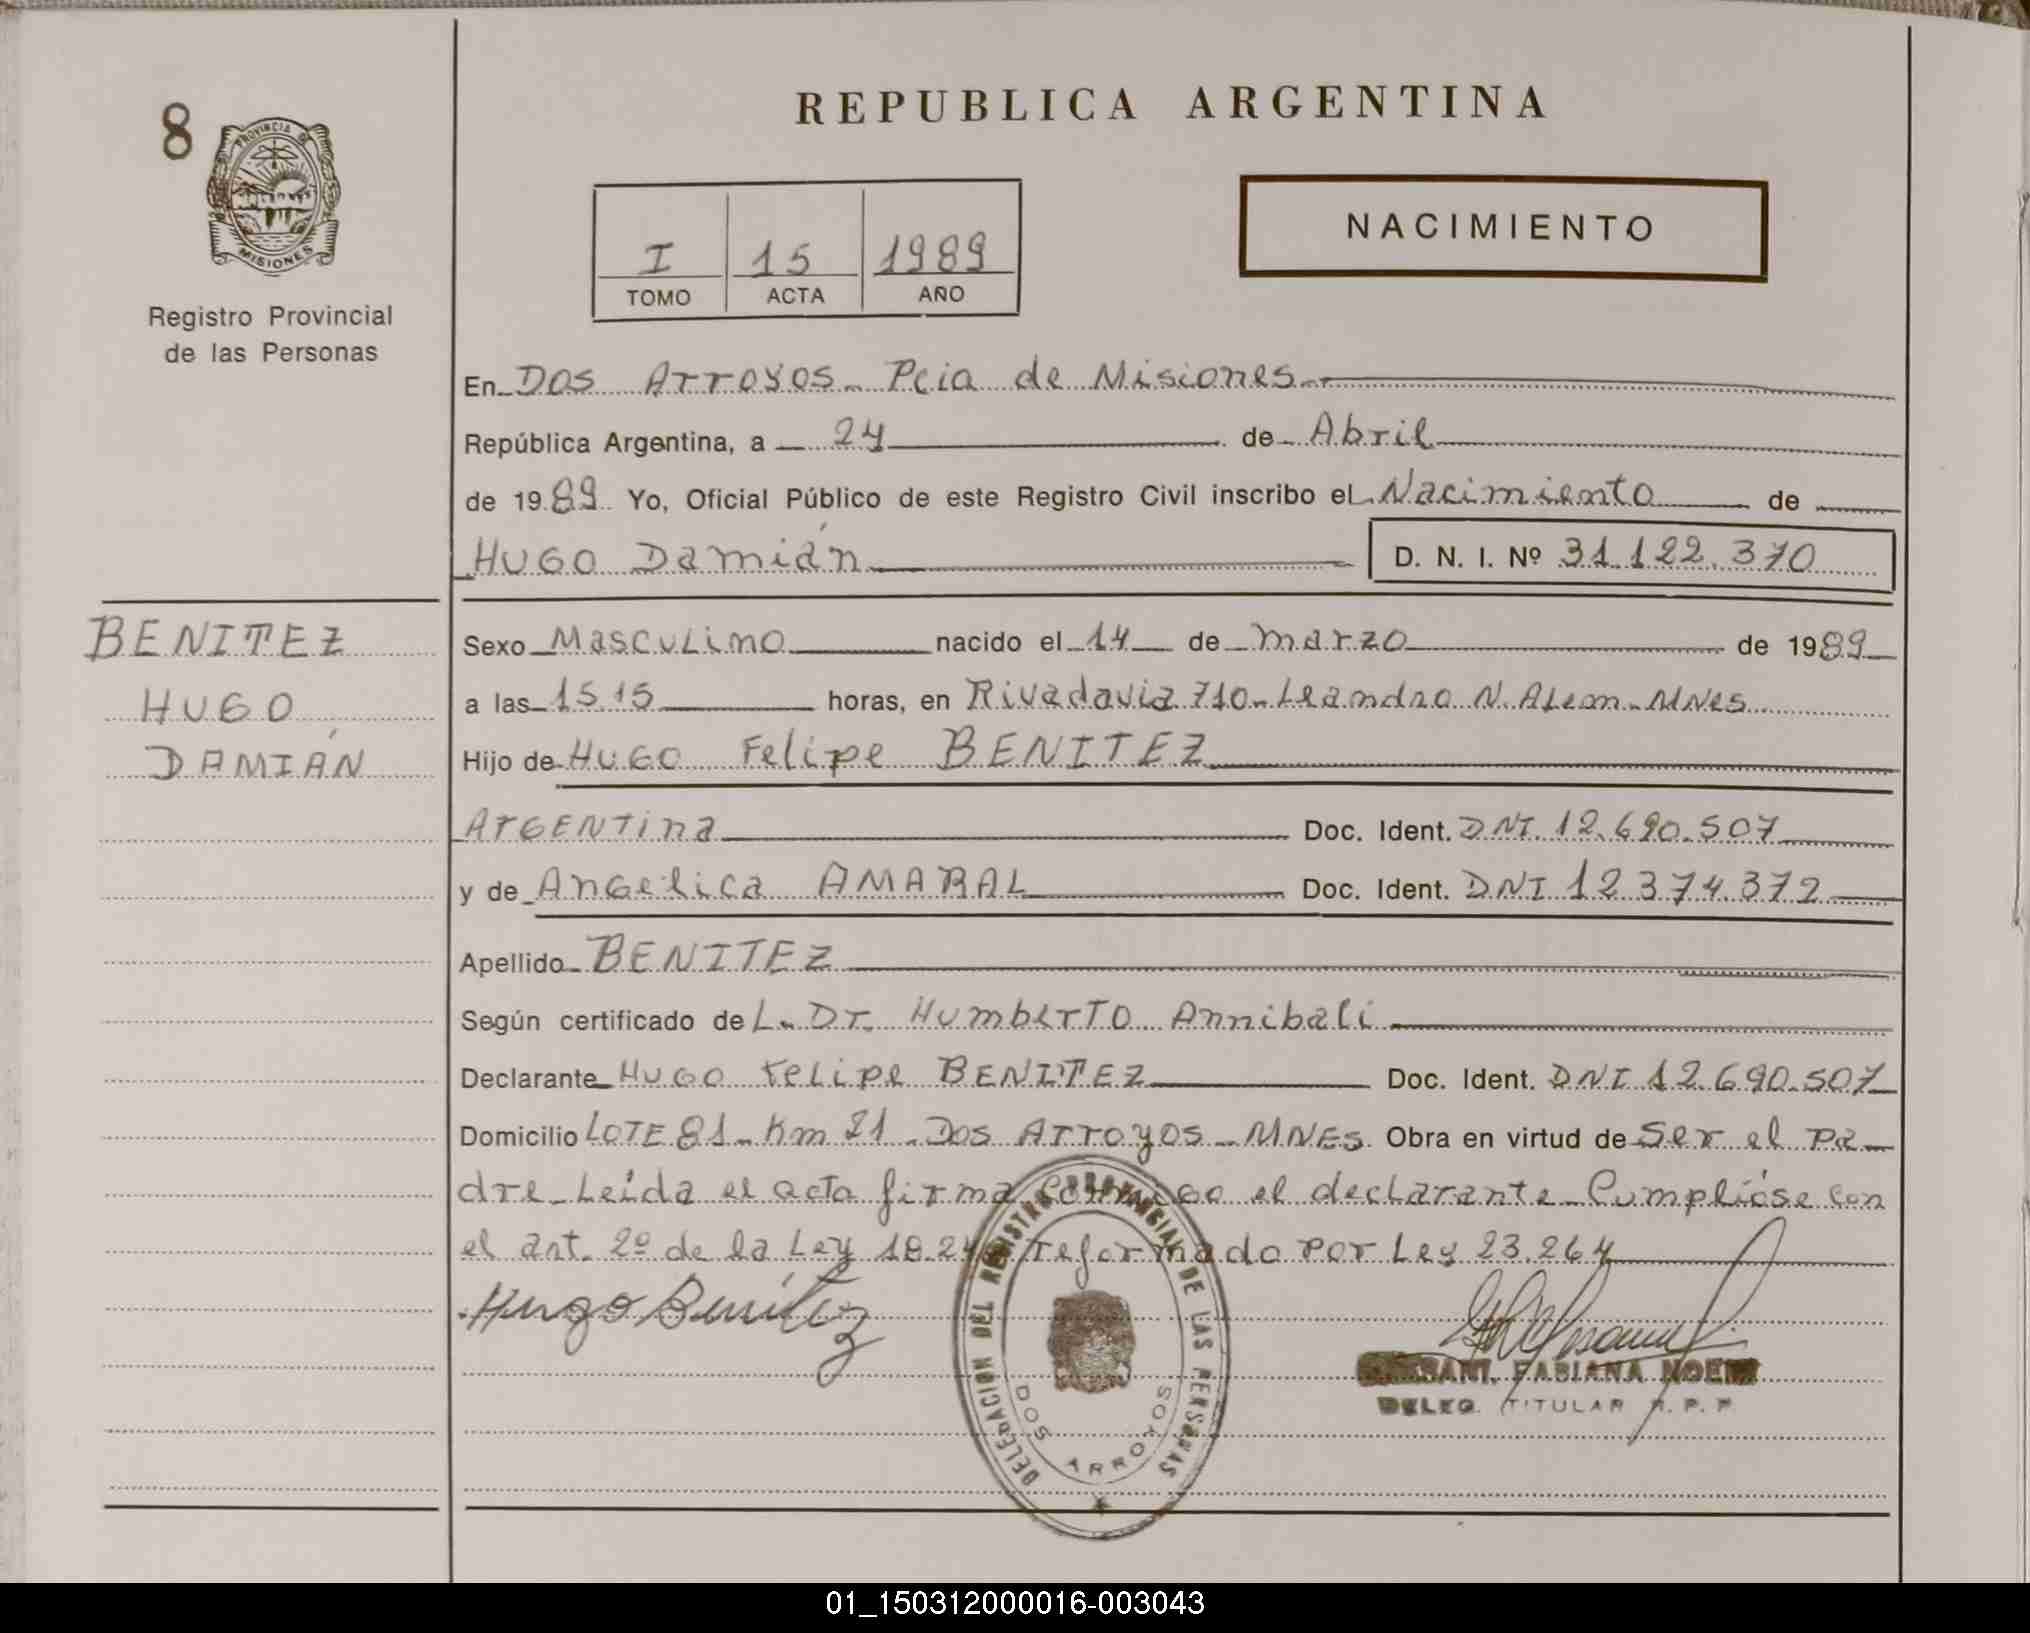 8
PROVINCIA DE
MISIONES
Registro Provincial
de las Personas
REPUBLICA ARGENTINA
I 15 1989
TOMO ACTA AÑO
NACIMIENTO
En Dos Arroyos - Pcia de Misiones
República Argentina, a 24 de Abril
de 1989 Yo, Oficial Público de este Registro Civil inscribo el Nacimiento de
HUGO Damián D. N. I. Nº 31.122.370
BENITEZ
HUGO
DAMIÁN
Sexo Masculino nacido el 14 de marzo de 1989
a las 15.15 horas, en Rivadavia 710 - Leandro N. Alem - MNes
Hijo de HUGO Felipe BENITEZ
Argentina Doc. Ident. DNI 12.690.507
y de Angélica AMARAL Doc. Ident. DNI 12.374.372
Apellido BENITEZ
Según certificado de L. Dr. Humberto Annibali
Declarante Hugo Felipe BENITEZ Doc. Ident. DNI 12.690.507
Domicilio LOTE 81 - Km 21 - Dos Arroyos - MNES. Obra en virtud de Ser el Pa-
dre - Leída el acta firma conmigo el declarante - Cumplióse con
el art. 2º de la Ley reformado por Ley 23.264
Hugo Benítez
DELEGACION DEL REGISTRO PROVINCIAL DE LAS PERSONAS
DOS ARROYOS
FABIANA NOEMI
DELEG. TITULAR R. P. P.
01_150312000016-003043